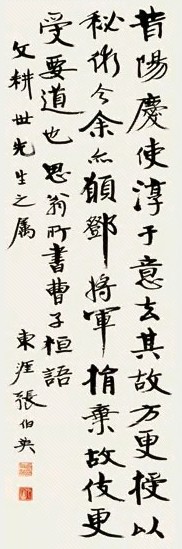 昔陽慶使淳于意去其故方更授以
秘術今余亦願鄧將軍捐棄故伎更
受要道也 思翁所書曹子桓語
文耕世先生之属 東涯張伯英